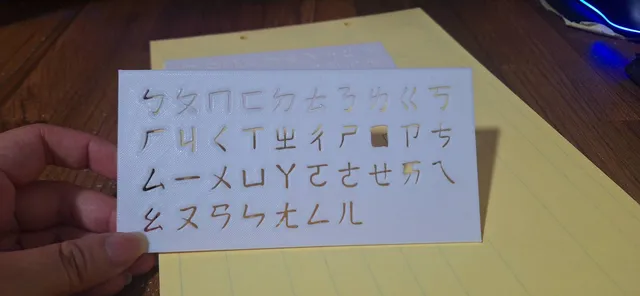 ㄅㄆㄇㄈㄉㄊㄋㄌㄍㄎ
ㄏㄐㄑㄒㄓㄔㄕ ㄗㄘ
ㄙㄧㄨㄩㄚㄛㄜㄝㄞㄟ
ㄠㄡㄢㄣㄤㄥㄦ